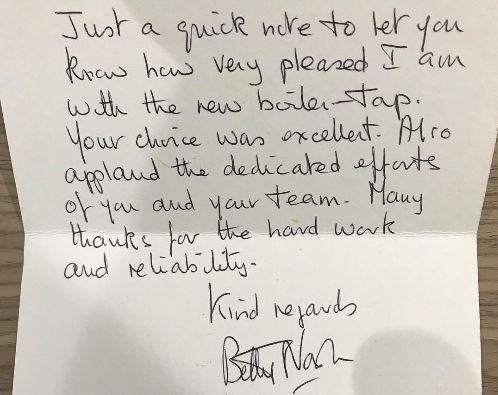 Just a quick note to let you
know how very pleased I am
with the new boiler-tap.
Your choice was excellent. Also
applaud the dedicated efforts
of you and your team. Many
thanks for the hard work
and reliability.
Kind regards
Betty Nash